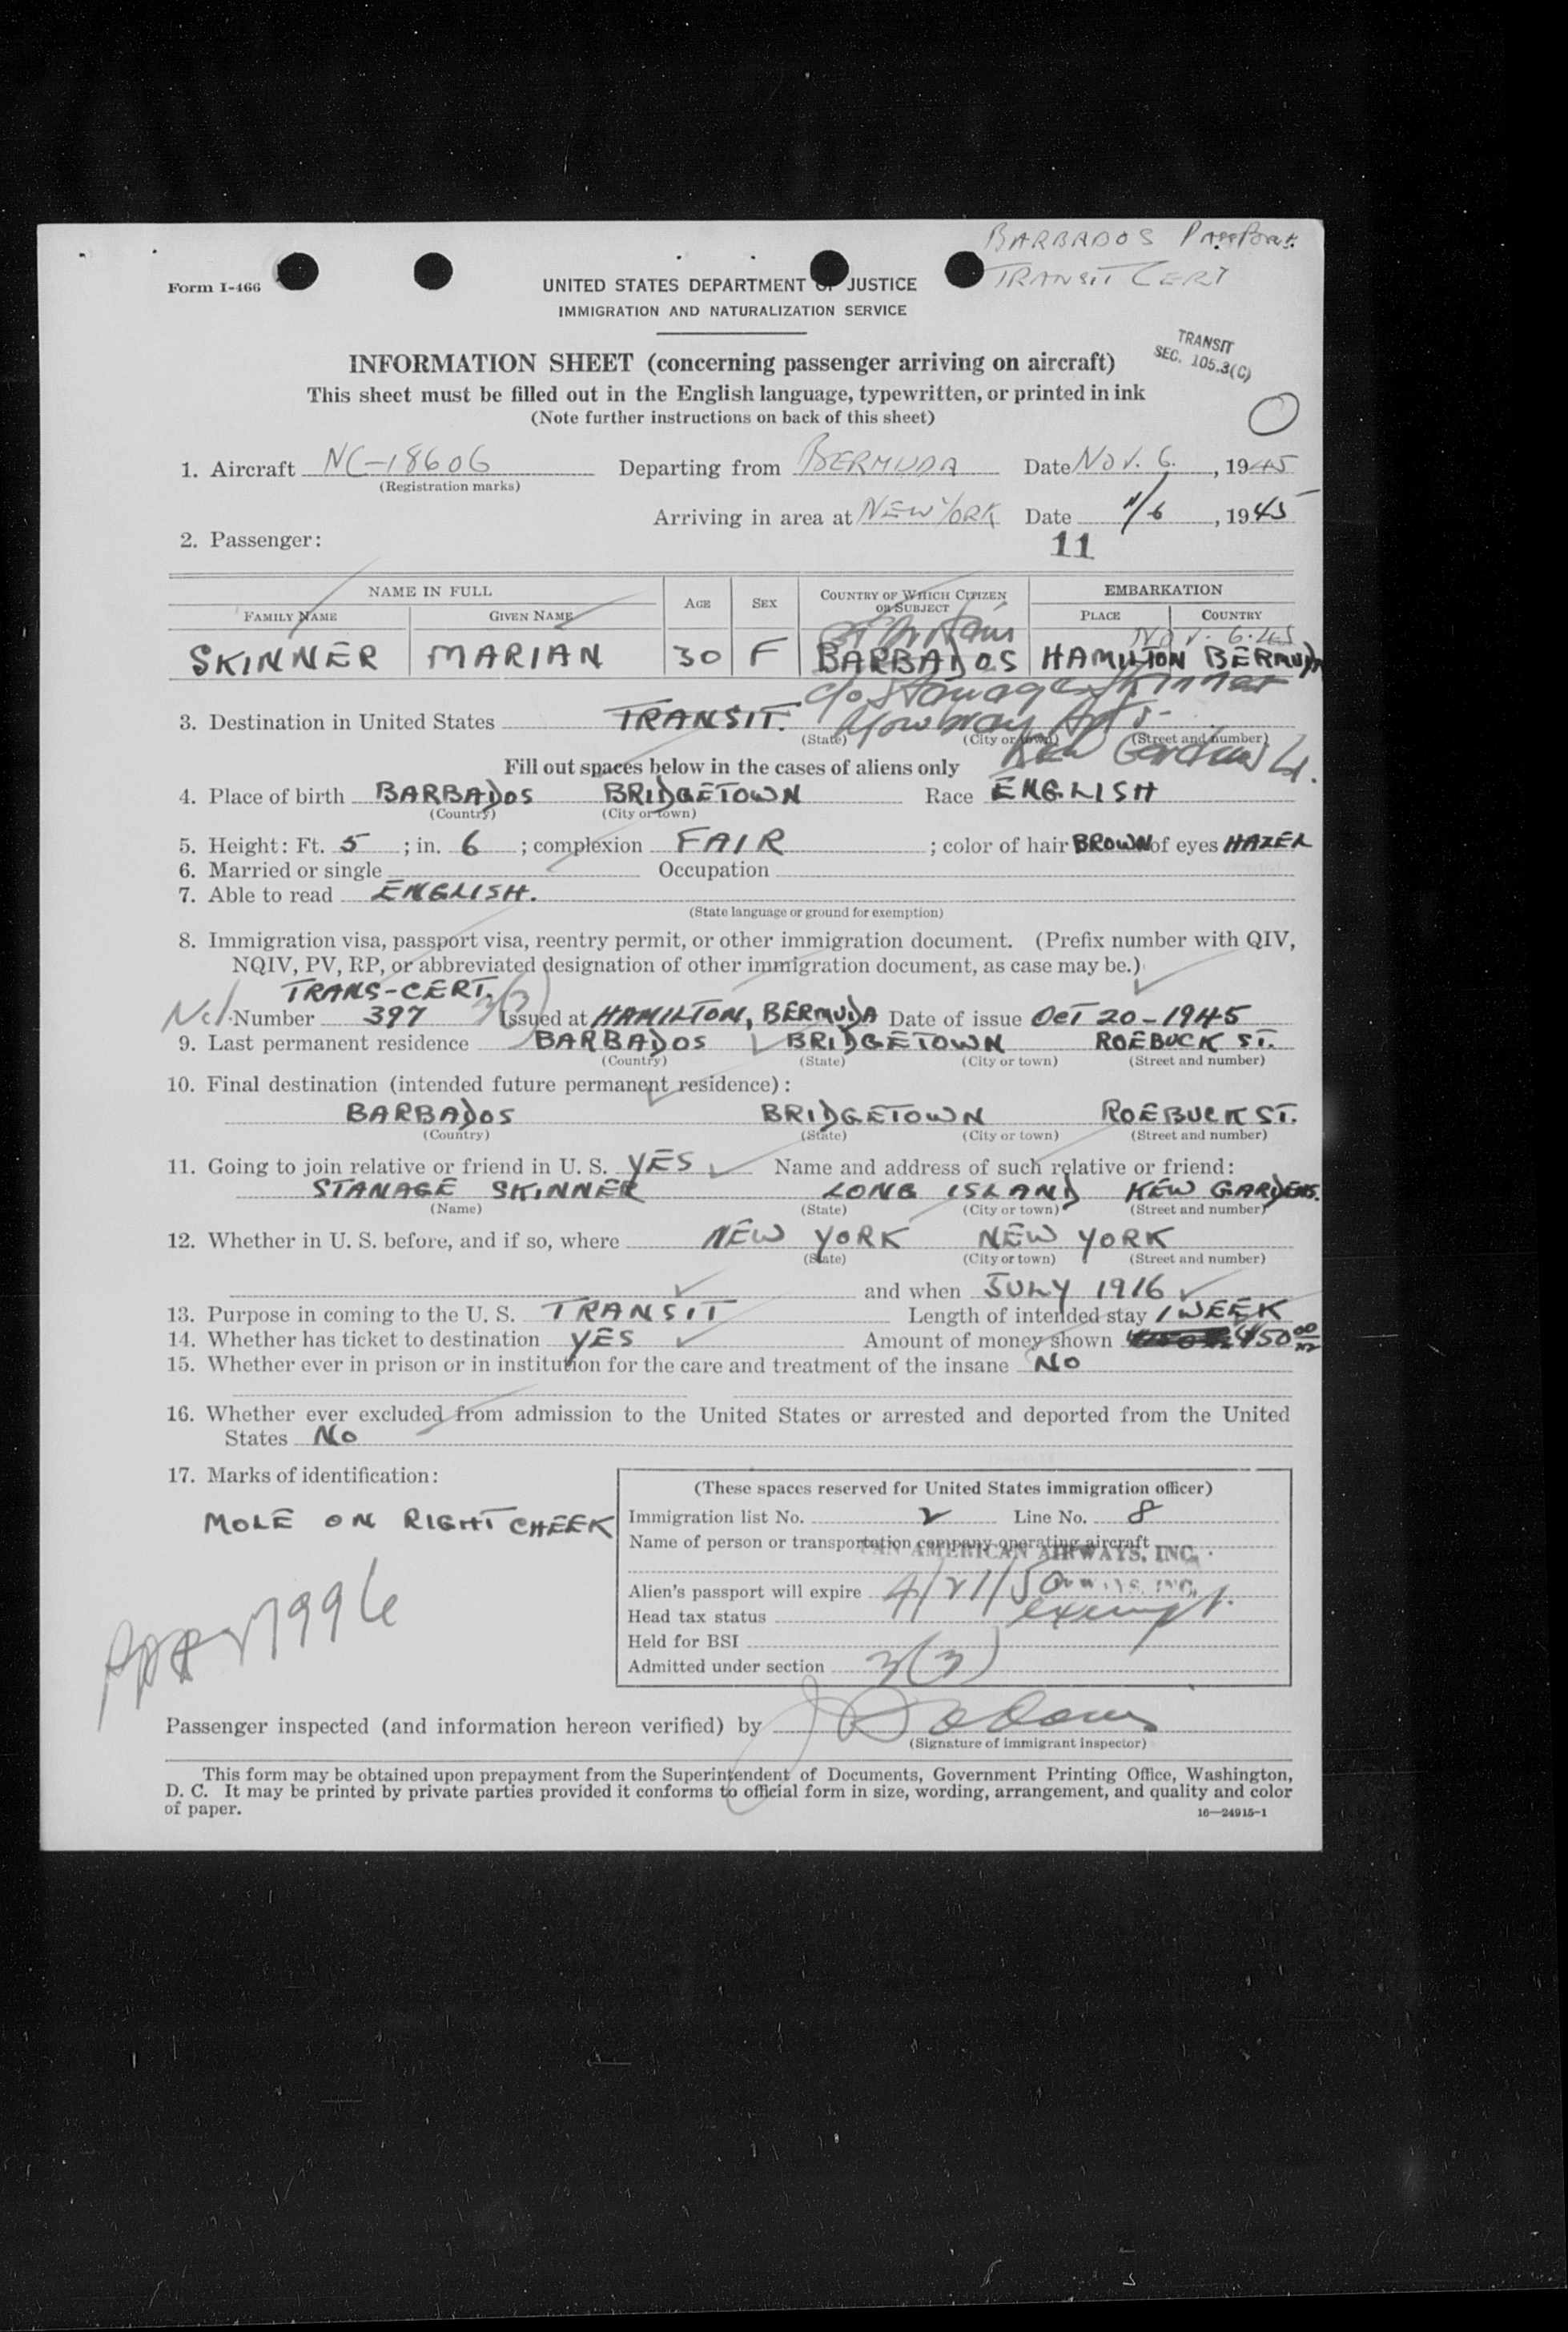 BARBADOS Passport
TRANSIT CERT
Form I-466
UNITED STATES DEPARTMENT OF JUSTICE
IMMIGRATION AND NATURALIZATION SERVICE
TRANSIT
SEC. 105.3(C)
INFORMATION SHEET (concerning passenger arriving on aircraft)
This sheet must be filled out in the English language, typewritten, or printed in ink
(Note further instructions on back of this sheet)
1. Aircraft NC-18606 Departing from BERMUDA Date Nov. 6. , 1945
(Registration marks)
Arriving in area at NEW YORK Date 11/6 , 1945
2. Passenger:
11
NAME IN FULL AGE SEX COUNTRY OF WHICH CITIZEN OR SUBJECT EMBARKATION
FAMILY NAME GIVEN NAME PLACE COUNTRY
Gt Britain Nov. 6. 45
SKINNER MARIAN 30 F BARBADOS HAMILTON BERMUDA
c/o Stanage Skinner
3. Destination in United States TRANSIT. Mowbray Apts
(State) (City or town) (Street and number)
Kew Gardens LI.
Fill out spaces below in the cases of aliens only
4. Place of birth BARBADOS BRIDGETOWN Race ENGLISH
(Country) (City or town)
5. Height: Ft. 5 ; in. 6 ; complexion FAIR ; color of hair BROWN of eyes HAZEL
6. Married or single Occupation
7. Able to read ENGLISH.
(State language or ground for exemption)
8. Immigration visa, passport visa, reentry permit, or other immigration document. (Prefix number with QIV,
NQIV, PV, RP, or abbreviated designation of other immigration document, as case may be.)
TRANS-CERT. 3(3)
Number 397 Issued at HAMILTON, BERMUDA Date of issue OCT 20-1945
9. Last permanent residence BARBADOS BRIDGETOWN ROEBUCK ST.
(Country) (State) (City or town) (Street and number)
10. Final destination (intended future permanent residence):
BARBADOS BRIDGETOWN ROEBUCK ST.
(Country) (State) (City or town) (Street and number)
11. Going to join relative or friend in U. S. YES Name and address of such relative or friend:
STANAGE SKINNER LONG ISLAND KEW GARDENS.
(Name) (State) (City or town) (Street and number)
12. Whether in U. S. before, and if so, where NEW YORK NEW YORK
(State) (City or town) (Street and number)
and when JULY 1916
13. Purpose in coming to the U. S. TRANSIT Length of intended stay 1 WEEK
14. Whether has ticket to destination YES Amount of money shown 450 00
15. Whether ever in prison or in institution for the care and treatment of the insane No
16. Whether ever excluded from admission to the United States or arrested and deported from the United
States No
17. Marks of identification:
MOLE ON RIGHT CHEEK
(These spaces reserved for United States immigration officer)
Immigration list No. 2 Line No. 8
Name of person or transportation company operating aircraft
PAN AMERICAN AIRWAYS, INC.
Alien's passport will expire 4/21/50
Head tax status exempt.
Held for BSI
Admitted under section 3(3)
Passenger inspected (and information hereon verified) by
(Signature of immigrant inspector)
This form may be obtained upon prepayment from the Superintendent of Documents, Government Printing Office, Washington,
D. C. It may be printed by private parties provided it conforms to official form in size, wording, arrangement, and quality and color
of paper.
16—24915-1